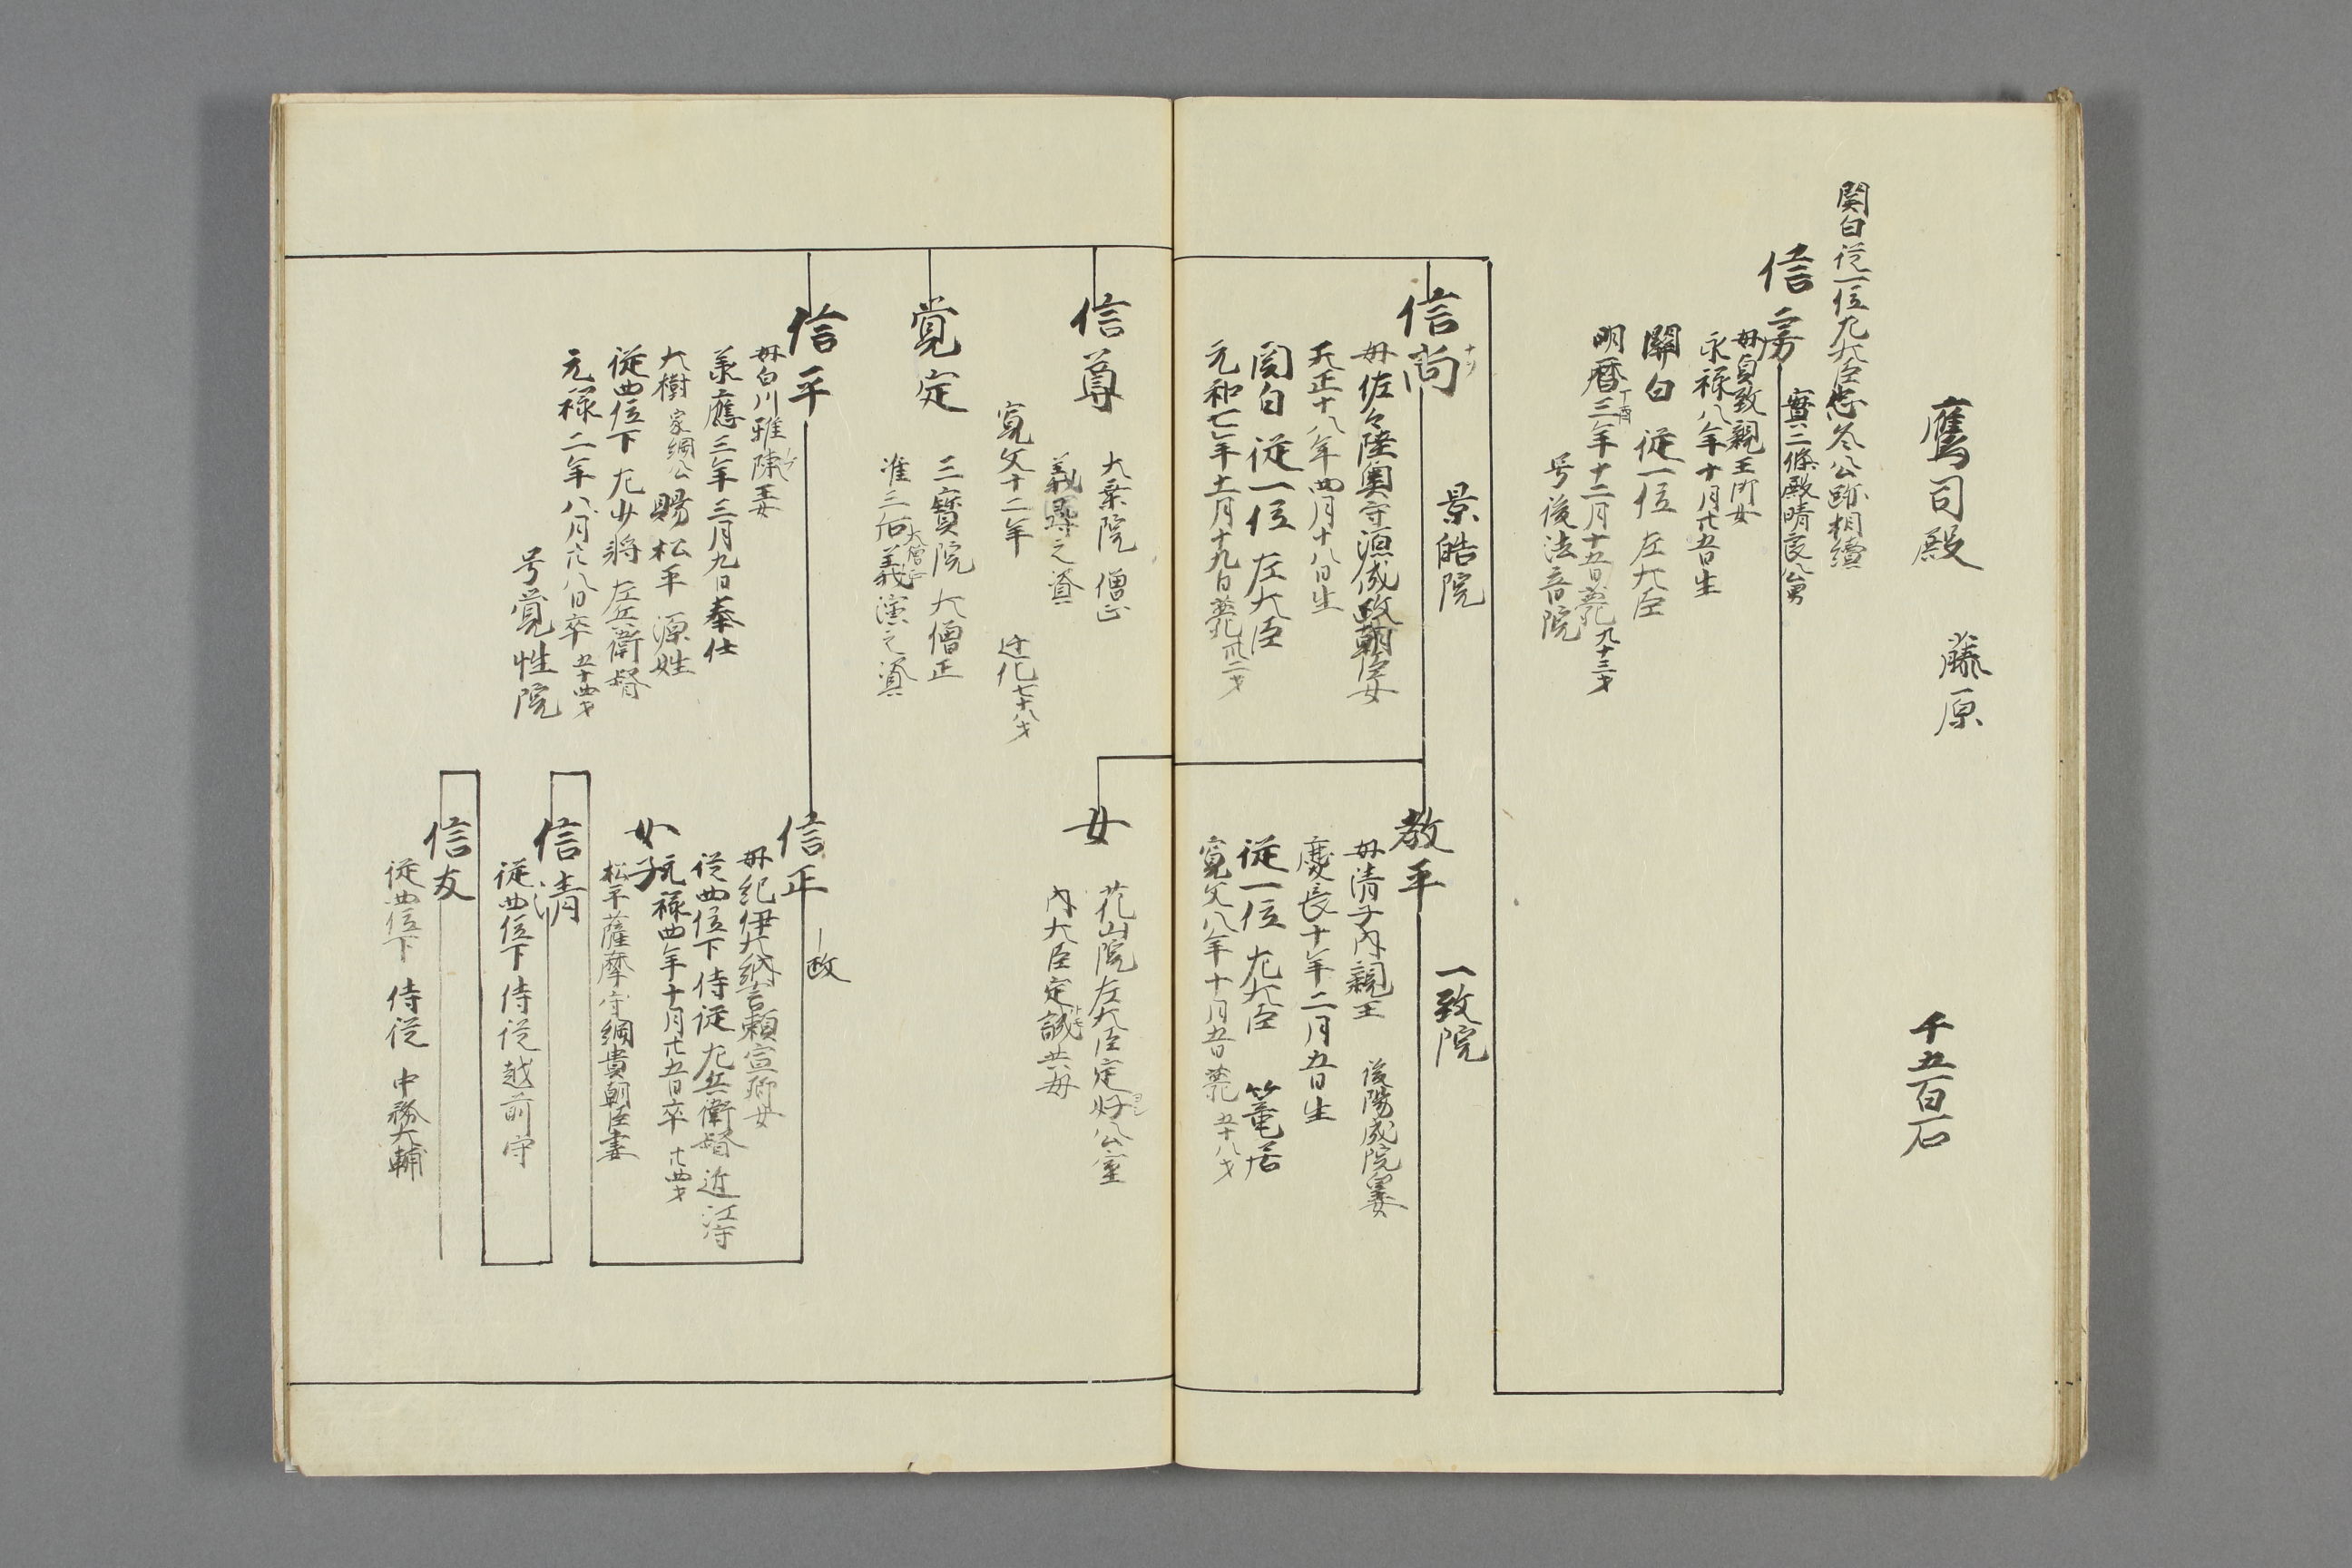 鷹司殿　藤原　千五百石
関白従一位左大臣忠冬公跡相續
信房
實二條殿晴良公男
母貞敦親王門女
永禄八年十月廿五日生
關白　従一位　左大臣
明暦三年丁酉十二月十五日薨九十三才
号後法音院
信尚
景皓院
母佐々陸奥守源成政朝臣女
天正十八年四月十八日生
関白　従一位　左大臣
元和七年十一月十九日薨卅二才
教平
一致院
母清子内親王　後陽成院皇女
慶長十年二月五日生
従一位　左大臣　篭居
寛文八年十月五日薨　五十八才
信尊
大乗院　僧正
義尋之資
寛文十二年　迁化七十八才
女
花山院左大臣定好公室
内大臣定誠公母
覚定
三寶院　大僧正
准三后大僧正義演之資
信平
母白川雅陳王女
承應三年三月九日奉仕
大樹家綱公賜松平　源姓
従四位下　左少将　左兵衛督
元禄二年八月廿八日卒　五十四才
号覚性院
信正
一政
母紀伊大納言頼宣卿女
従四位下　侍従　左兵衛督　近江守
元禄四年十月廿五日卒　廿四才
女子
松平薩摩守綱貴朝臣妻
信清
従四位下　侍従　越前守
信友
従四位下　侍従　中務大輔